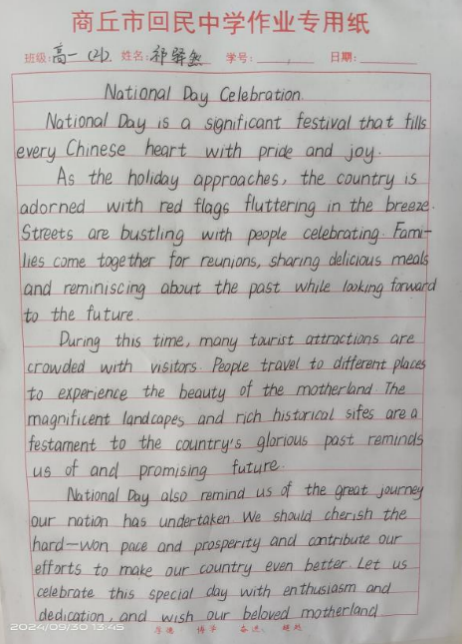 商丘市回民中学作业专用纸
班级: 高一 (2) 姓名: 祁驿然 学号: 日期:
National Day Celebration
National Day is a significant festival that fills
every Chinese heart with pride and joy.
As the holiday approaches, the country is
adorned with red flags fluttering in the breeze.
Streets are bustling with people celebrating. Fami-
lies come together for reunions, sharing delicious meals
and reminiscing about the past while looking forward
to the future.
During this time, many tourist attractions are
crowded with visitors. People travel to different places
to experience the beauty of the motherland The
magnificent landcapes and rich historical sites are a
testament to the country's glorious past reminds
us of and promising future.
National Day also remind us of the great journey
our nation has undertaken. We should cherish the
hard-won pace and prosperity and contribute our
efforts to make our country even better. Let us
celebrate this special day with enthusiasm and
dedication, and wish our beloved motherland
2024/09/30 13:45